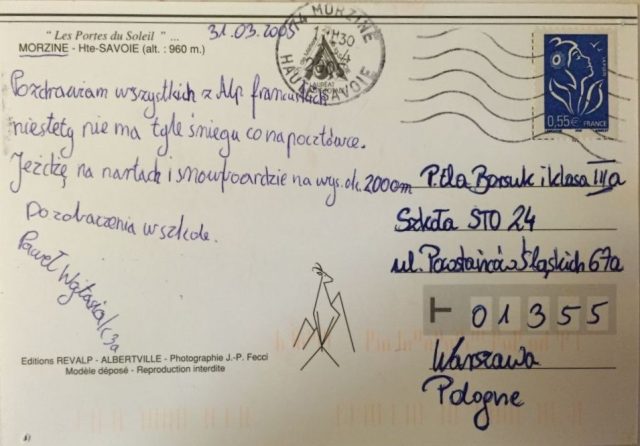 " Les Portes du Soleil " ...
MORZINE - Hte-SAVOIE (alt. : 960 m.)
31.03.2005
74 MORZINE
HAUTE-SAVOIE
0,55€ FRANCE
Pozdrawiam wszystkich z Alp francuskich
niestety nie ma tyle śniegu co na pocztówce.
Jeżdżę na nartach i snowboardzie na wys. ok. 2000m
Pozdraczenia w szkole.
Paweł 3a
P. Ela Borsuk i klasa IIIa
Szkoła STO 24
ul. Powstańców Śląskich 67a
01355
Warszawa
Pologne
Editions REVALP - ALBERTVILLE - Photographie J.-P. Fecci
Modèle déposé - Reproduction interdite